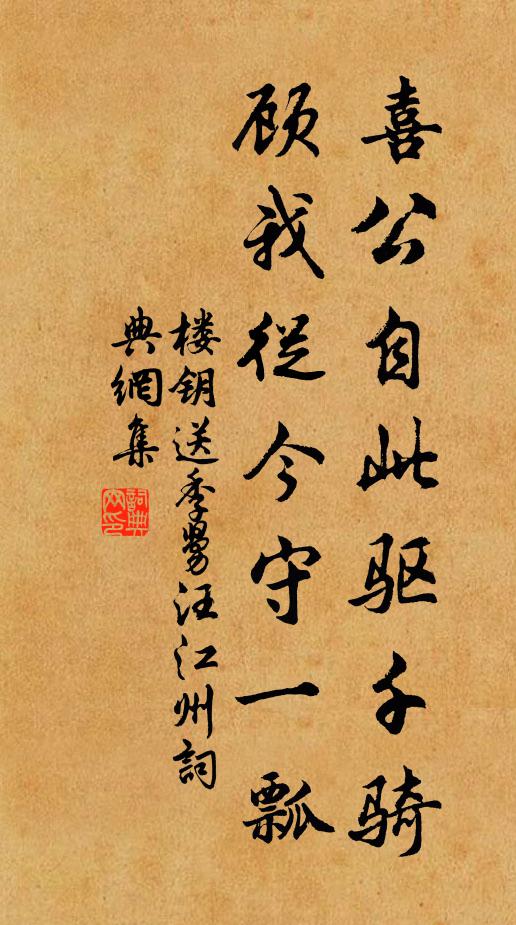 喜公自此驱千骑
顾我従今守一瓢
楼钥送季舅汪江州詞
典網集
詞典网印